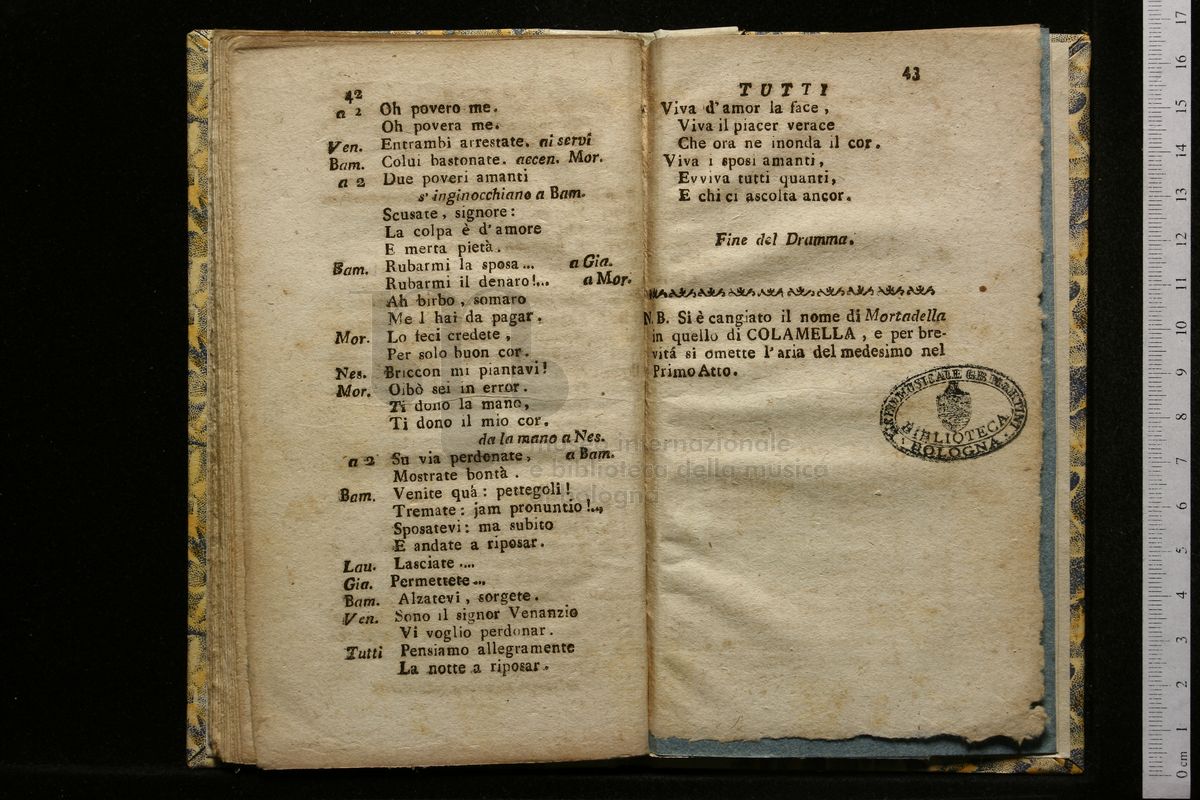 42
a 2 Oh povero me.
Oh povera me.
Ven. Entrambi arrestate. ai servi
Bam. Colui bastonate. accen. Mor.
a 2 Due poveri amanti
s'inginocchiano a Bam.
Scusate, signore:
La colpa è d'amore
E merta pietà.
Bam. Rubarmi la sposa... a Gia.
Rubarmi il denaro!... a Mor.
Ah birbo, somaro
Me l hai da pagar.
Mor. Lo feci credete,
Per solo buon cor.
Nes. Briccon mi piantavi!
Mor. Oibò sei in error.
Ti dono la mano,
Ti dono il mio cor.
da la mano a Nes.
a 2 Su via perdonate, a Bam.
Mostrate bontà.
Bam. Venite quà: pettegoli!
Tremate: jam pronuntio!..,
Sposatevi: ma subito
E andate a riposar.
Lau. Lasciate ....
Gia. Permettete...
Bam. Alzatevi, sorgete.
Ven. Sono il signor Venanzio
Vi voglio perdonar.
Tutti Pensiamo allegramente
La notte a riposar.
43
TUTTI
Viva d'amor la face,
Viva il piacer verace
Che ora ne inonda il cor.
Viva i sposi amanti,
Evviva tutti quanti,
E chi ci ascolta ancor.
Fine del Dramma.
N.B. Si è cangiato il nome di Mortadella
in quello di COLAMELLA, e per bre-
vitá si omette l'aria del medesimo nel
Primo Atto.
MUSICALE G.B. MARTINI
BIBLIOTECA
BOLOGNA
internazionale
e biblioteca della musica
bologna
0 cm 1 2 3 4 5 6 7 8 9 10 11 12 13 14 15 16 17